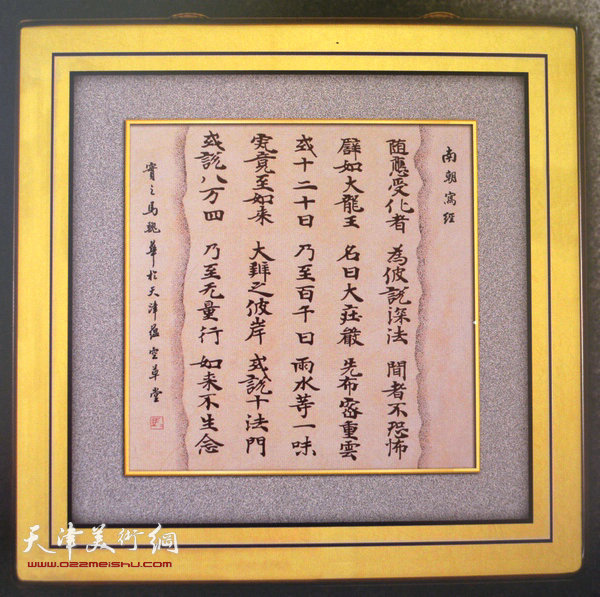 南朝寫經
随應受化者 為彼說深法 聞者不恐怖
譬如大龍王 名曰大莊嚴 先布密重雲
或十二十日 乃至百千日 雨水等一味
究竟至如来 大辯之彼岸 或說十法門
或說八万四 乃至无量行 如来不生念
實之馬魏華於天津蕴空草堂
天津美術網
www.022meishu.com